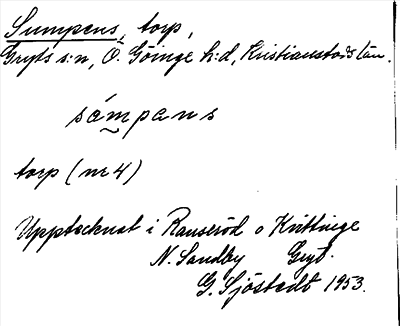 Sumpens, torp,
Gryts s:n, Ö. Göinge h:d, Kristianstads län.
sámpans
torp (nr 4)
Upptecknat i Ranseröd o Knittinge
N. Sandby Gryt.
G. Sjöstedt 1953.